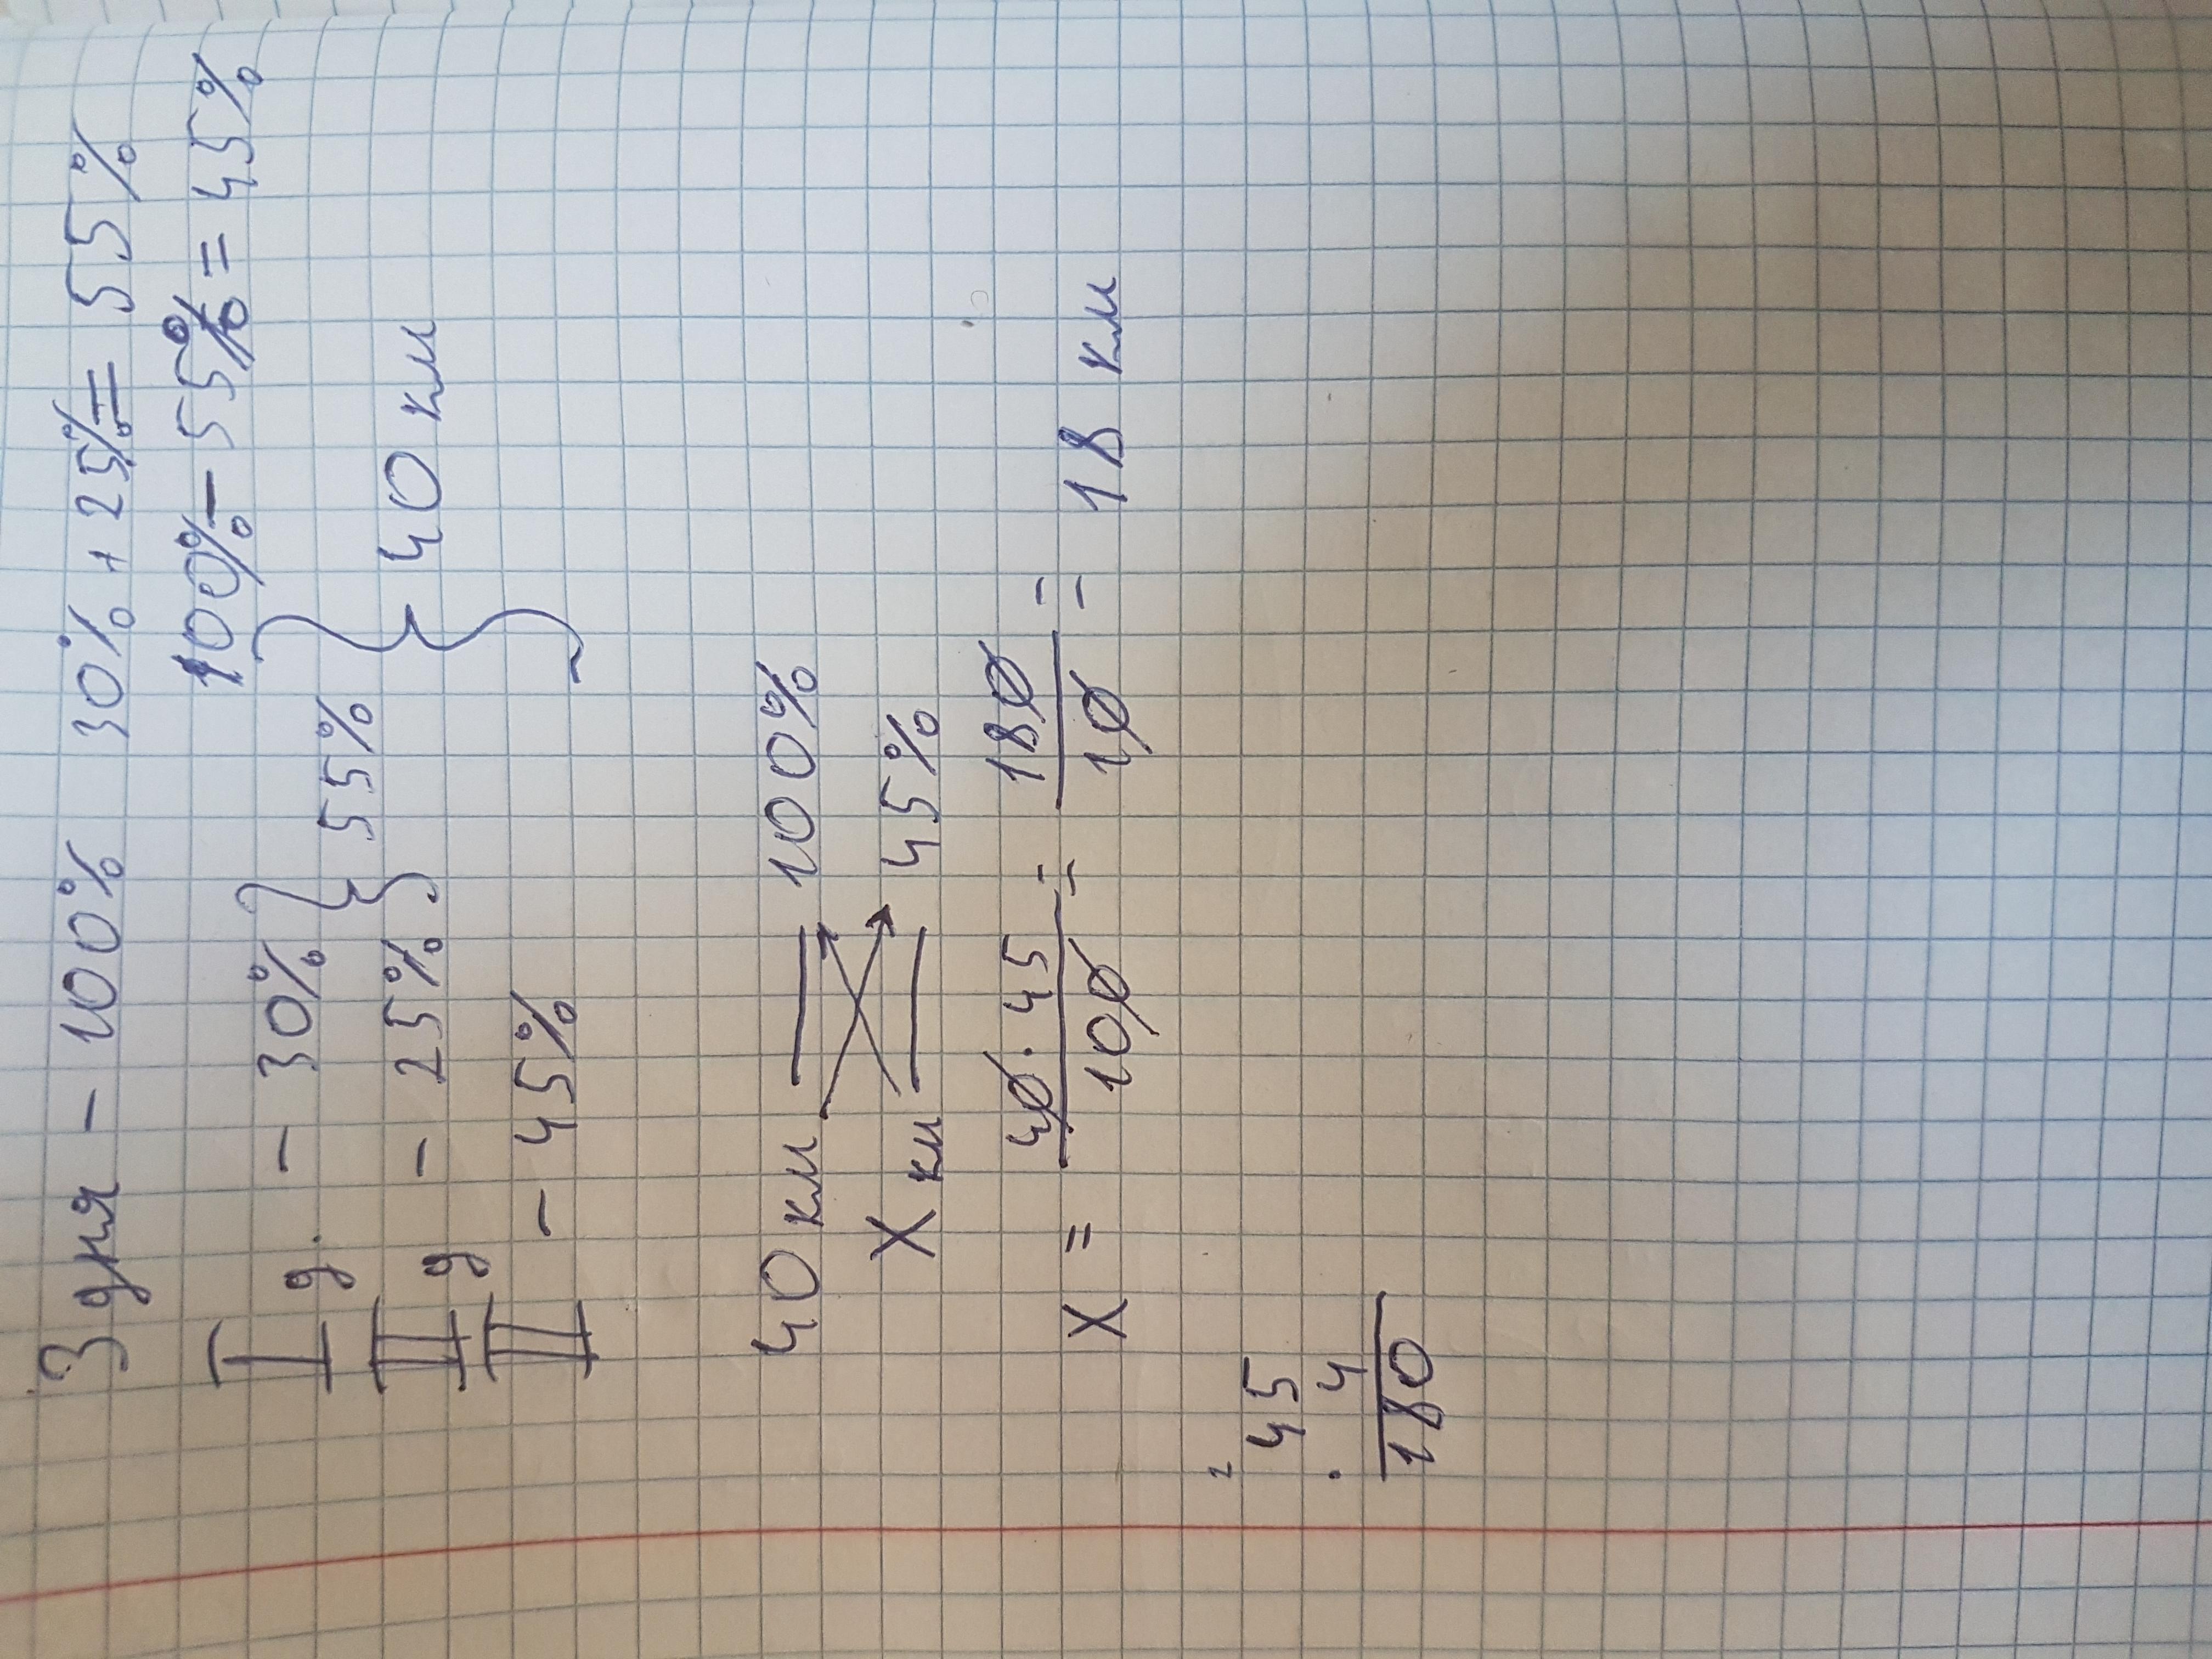 3 дня – 100% 30% + 25% = 55%
100% – 55% = 45%
I д. – 30%
55%
II д – 25%
40 км
III – 45%
40 км — 100%
X км — 45%
X = 40 · 45 / 100 = 180 / 10 = 18 км
2
45
· 4
180